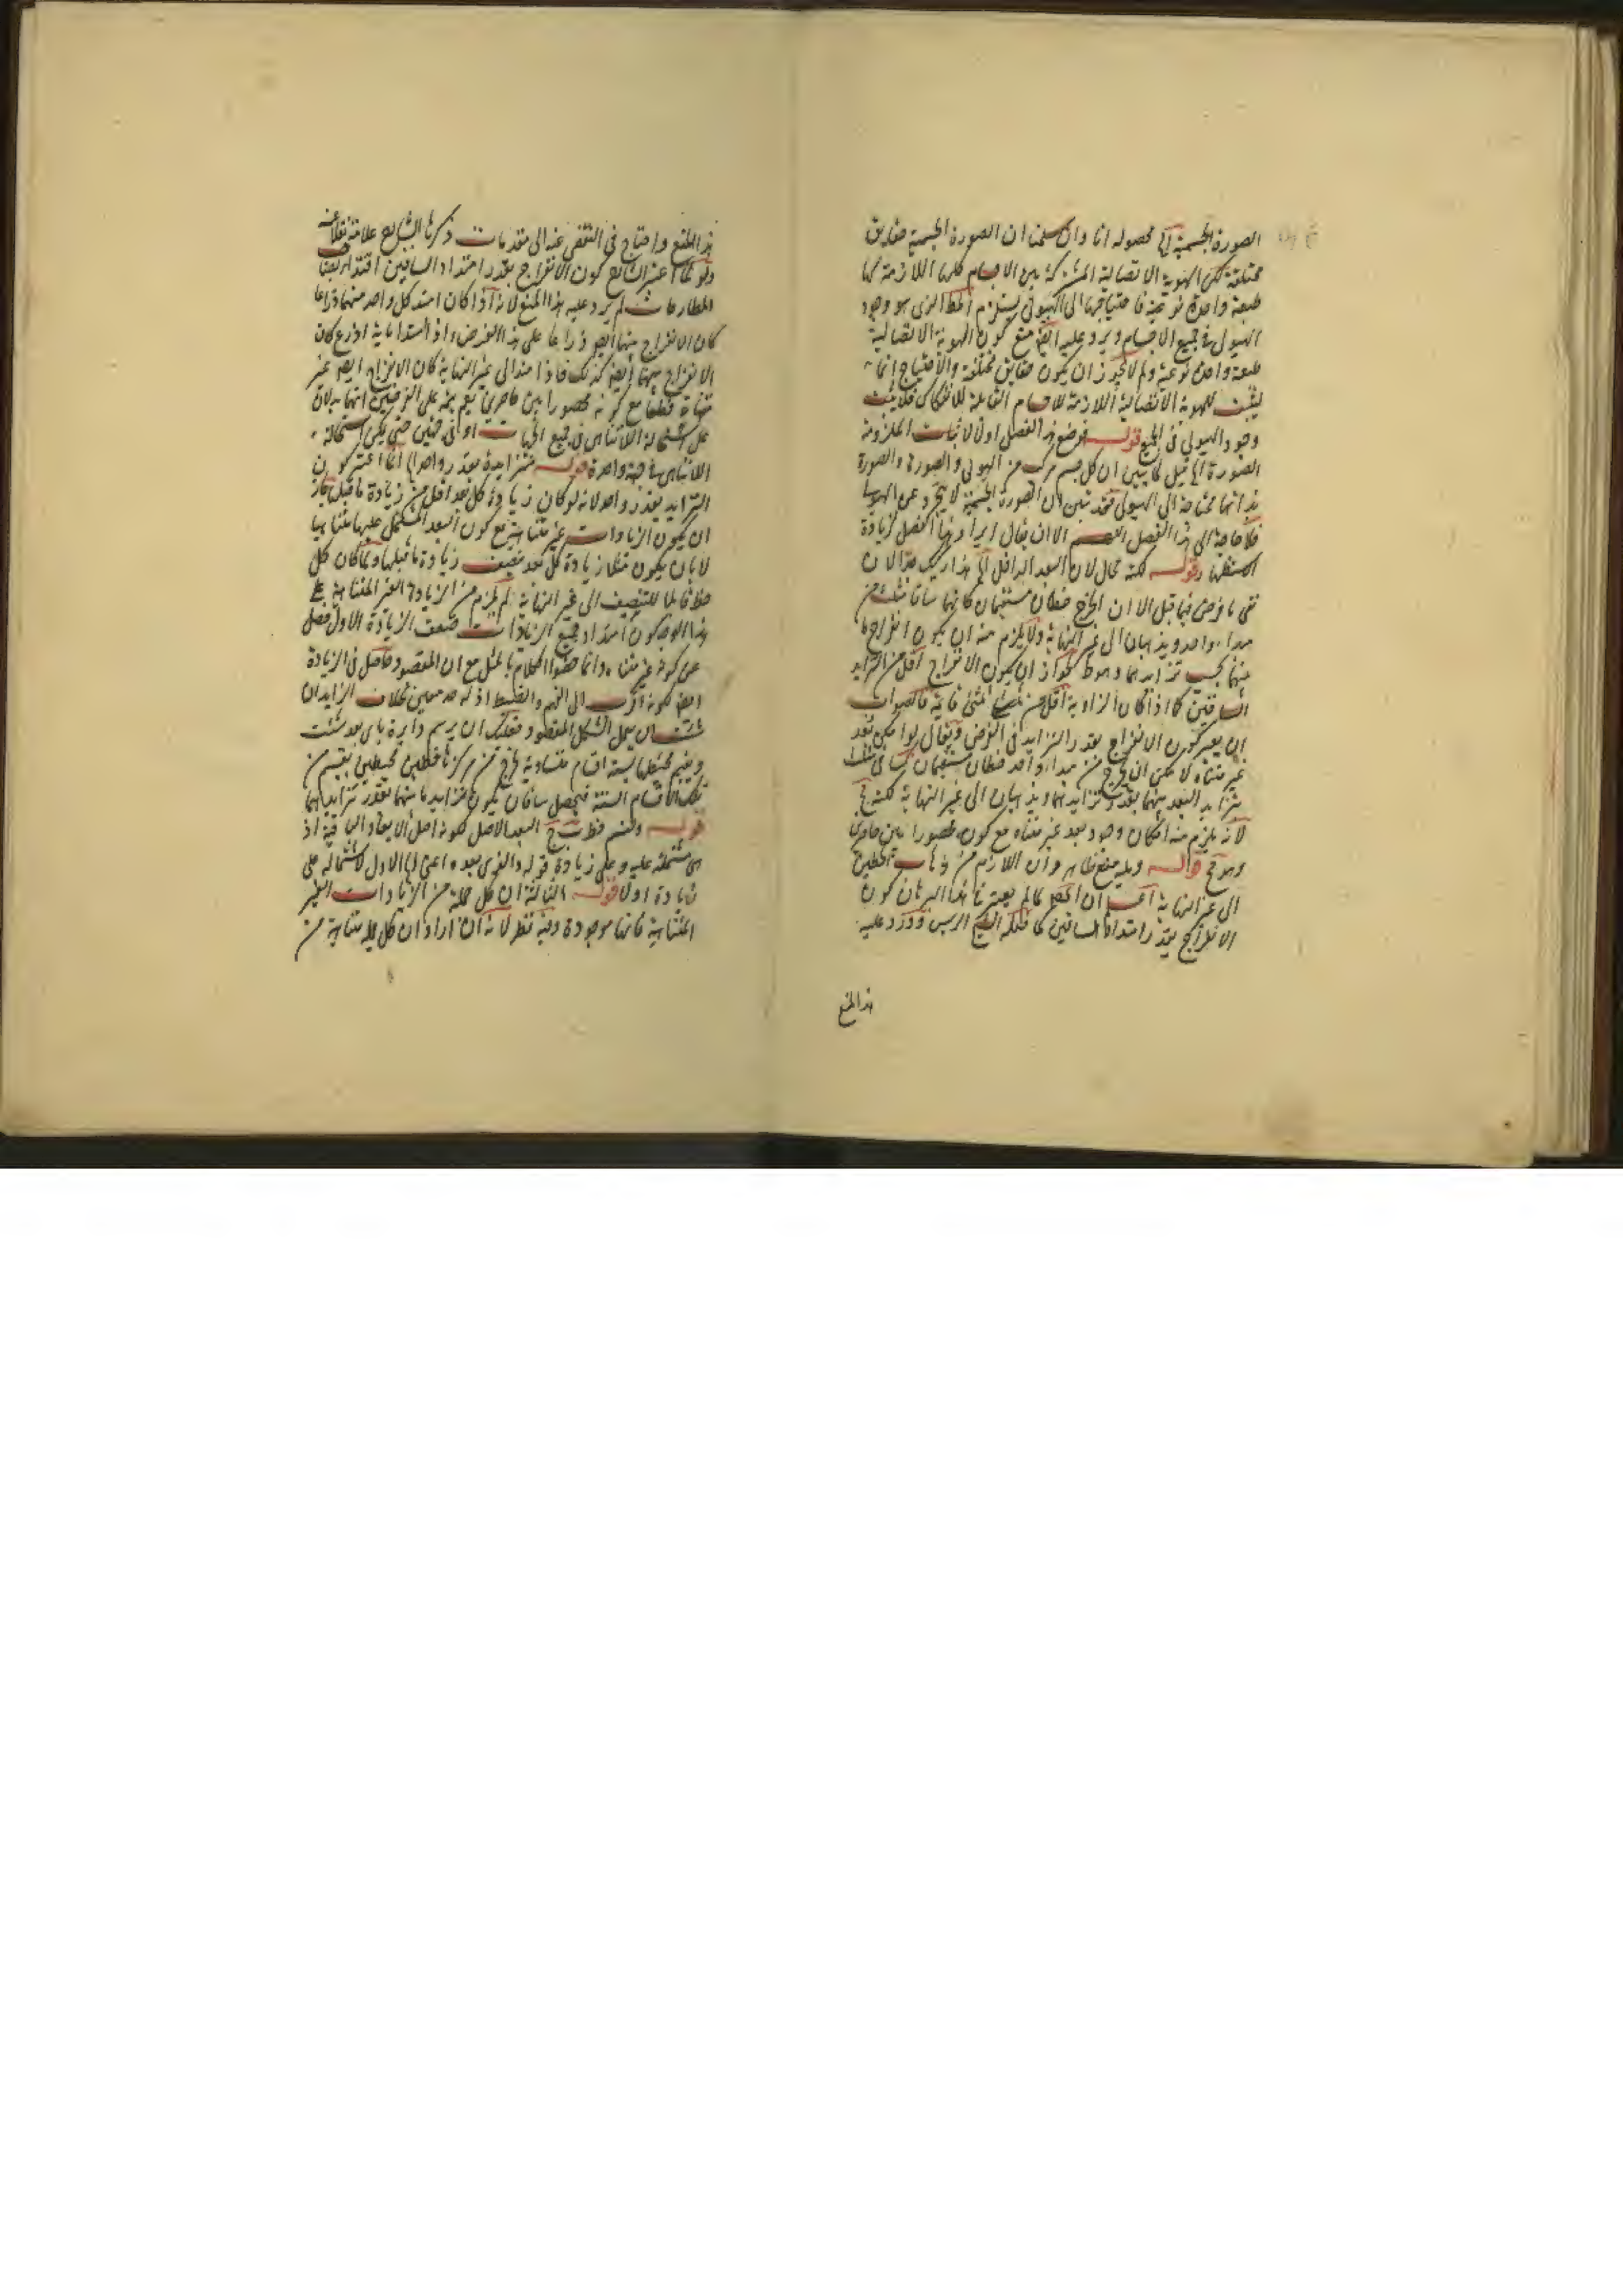 الصورة الجسمية الخ محصوله انا وان سلمنا ان الصورة الجسمية حقايق
مختلفة لكن الهوية الاتصالية المشتركة بين الاجسام كلها اللازمة لها
طبيعة واحدة نوعية فاحتياجها الى الهيولى يستلزم المط الذى هو وجود
الهيولى فى جميع الاجسام ويرد عليه ايضا منع كون الهوية الاتصالية
طبيعة واحدة نوعية ولم لا يجوز ان يكون حقايق مختلفة والاحتياج انما
يثبت للهوية الاتصالية اللازمة للاجسام القابلة للانفكاك فلا يثبت
وجود الهيولى فى الجميع قوله فوضع هذا الفصل اولا لاثبات الملزومة
الصورة الخ قيل لما يبين ان كل جسم مركب من الهيولى والصورة والصورة
بذاتها محتاجة الى الهيولى فقد تبين ان الصورة الجسمية لا تتجرد عن الهيولى
فلا حاجة الى هذا الفصل اللهم الا ان يقال ايراد هذا الفصل لزيادة
استظهار قوله لكنه محال لان البعد الداخل الخ
نفى ما فرض فيما قبل الا ان الخرج خطان مستقيمان كانهما ساقا مثلث من
مبداء واحد ويذهبان الى غير النهاية ولا يلزم منه ان يكون انفراج ما
بينهما بحسب تزايدهما وهو ط لجواز ان يكون الانفراج اقل من تزايد
الساقين كما اذا كان الزاوية اقل من ثلثى قائمة فالصواب
ان يعتبر كون الانفراج بقدر التزايد فى الفرض ويقال لو امكن بعد
غير متناه لامكن ان يخرج من مبداء واحد خطان مستقيمان كساقى مثلث
يتزايد البعد بينهما بقدر تزايدهما ويذهبان الى غير النهاية لكنه مح
لانه يلزم منه امكان وجود بعد غير متناه مع كونه محصورا بين حاصرين
وهو مح قوله وعليه منع ظاهر وان اللازم من ذهاب الخطين
الى غير النهاية اعلم ان المص لما لم يعتبر فى هذا البرهان كون
الانفراج بقدر امتداد الساقين كما فعله الشيخ الرييس وورد عليه
هذا المنع
هذا المنع واحتاج فى التفصى عنه الى مقدمات ذكرها الشارح علامة نقلا عنه
ولو لما اعتبر الشارح كون الانفراج بقدر امتداد الساقين اقتداء بصاحب
المطارحات لم يرد عليه هذا المنع لانه اذا كان امتد كل واحد منهما ذراعا
كان الانفراج بينهما ايضا ذراعا على هذا الفرض واذا امتدا ماية اذرع كان
الانفراج بينهما ايضا كذلك فاذا امتدا الى غير النهاية كان الانفراج ايضا غير
متناه قطعا مع كونه محصورا بين حاصرين نعم يتجه على الوجهين انهما يدلان
على استحالة اللاتناهى فى جميع الجهات او فى جهتين حتى يمكن استحالة
اللاتناهى فى جهة واحدة قوله متزايدة بقدر واحد الخ انما اعتبر كون
التزايد بقدر واحد لانه لو كان زيادة كل بعد اقل من زيادة ما قبله جاز
ان يكون الزيادات غير متناهية مع كون البعد المشتمل عليها متناهيا
لا بان يكون مثلا زيادة كل بعد نصف زيادة ما قبلها ولما كان كل
خط قابلا للتنصيف الى غير النهاية لم يلزم من الزيادة الغير المتناهية على
هذا الوجه كون امتداد جميع الزيادات ضعف الزيادة الاولى فضلا
عن كونه غير متناه وانما خصوا الكلام بالمثل مع ان المقصود حاصل فى الزيادة
ايضا لكونه اقرب الى الفهم والضبط اذ له حد معين بخلاف الزايد ان
شئت ان يحصل الشكل المقصود فعليك ان يرسم دايرة باى بعد شئت
ويقسم محيطها بستة اقسام متساوية ثم يخرج من مركزها خطين محيطين بقسم من
تلك الاقسام الستة فيحصل ساقان يكون تزايد ما بينهما بقدر تزايدهما
قوله ولنسم خط ب ج البعد الاصل لكونه اصل الابعاد الباقية اذ
هى مشتملة عليه وعلى زيادة قوله والذى بعده اعنى الاول لاشتماله على
زيادة اولا قوله الثالثة ان كل جملة من الزيادات الغير
المتناهية فانها موجودة وفيه نظر لانه ان اراد ان كل جملة متناهية من